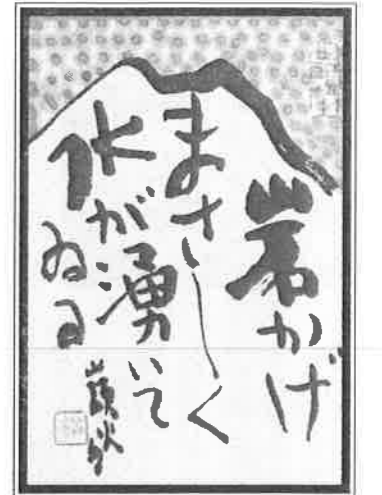 岩かげ
まさしく
水が湧いて
ゐる 山頭火